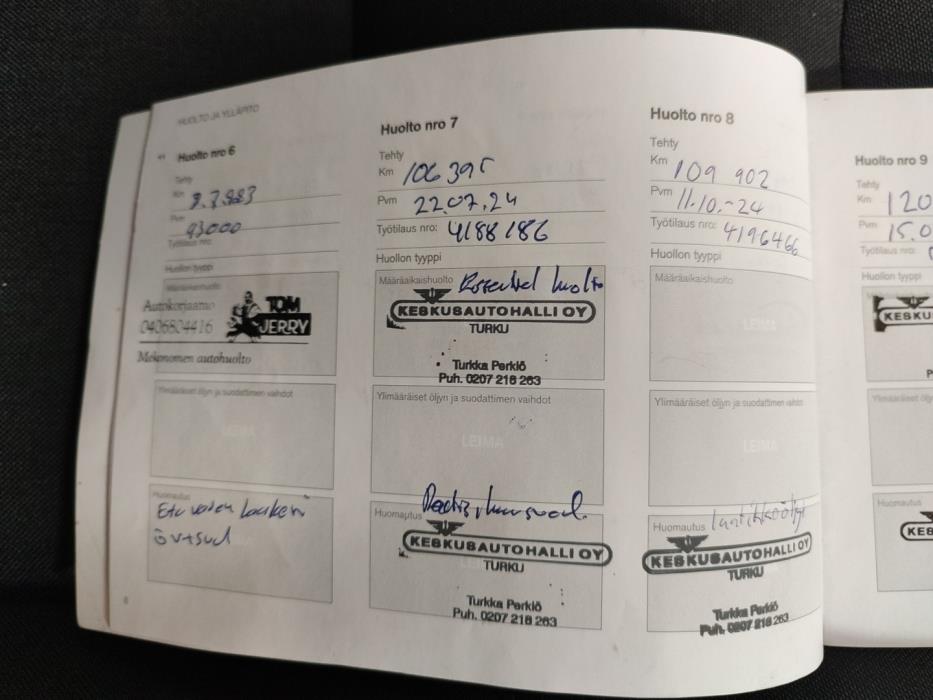 HUOLTO JA YLLÄPITO
Huolto nro 6
Tehty
Km
Pvm 93000
Työtilaus nro:
Huollon tyyppi
Määräaikaishuolto
Autokorjaamo TOM
0406804416 JERRY
Mekonomen autohuolto
Ylimääräiset öljyn ja suodattimen vaihdot
LEIMA
Huomautus
öv+sud
6
Huolto nro 7
Tehty
Km 106 395
Pvm 22.07.24
Työtilaus nro: 4188186
Huollon tyyppi
Määräaikaishuolto Essential huolto
KESKUSAUTOHALLI OY
TURKU
Turkka Perkiö
Puh. 0207 218 263
Ylimääräiset öljyn ja suodattimen vaihdot
LEIMA
Huomautus
KESKUSAUTOHALLI OY
TURKU
Turkka Perkiö
Puh. 0207 218 263
Huolto nro 8
Tehty
Km 109 902
Pvm 11.10.-24
Työtilaus nro: 4196466
Huollon tyyppi
Määräaikaishuolto
LEIMA
Ylimääräiset öljyn ja suodattimen vaihdot
LEIMA
Huomautus
KESKUSAUTOHALLI OY
TURKU
Turkka Perkiö
Puh. 0207 218 263
Huolto nro 9
Tehty
Km 120
Pvm 15.0
Työtilaus nro:
Huollon tyyppi
KESKU
P
Ylimääräiset öljyn
Huomautus
KES